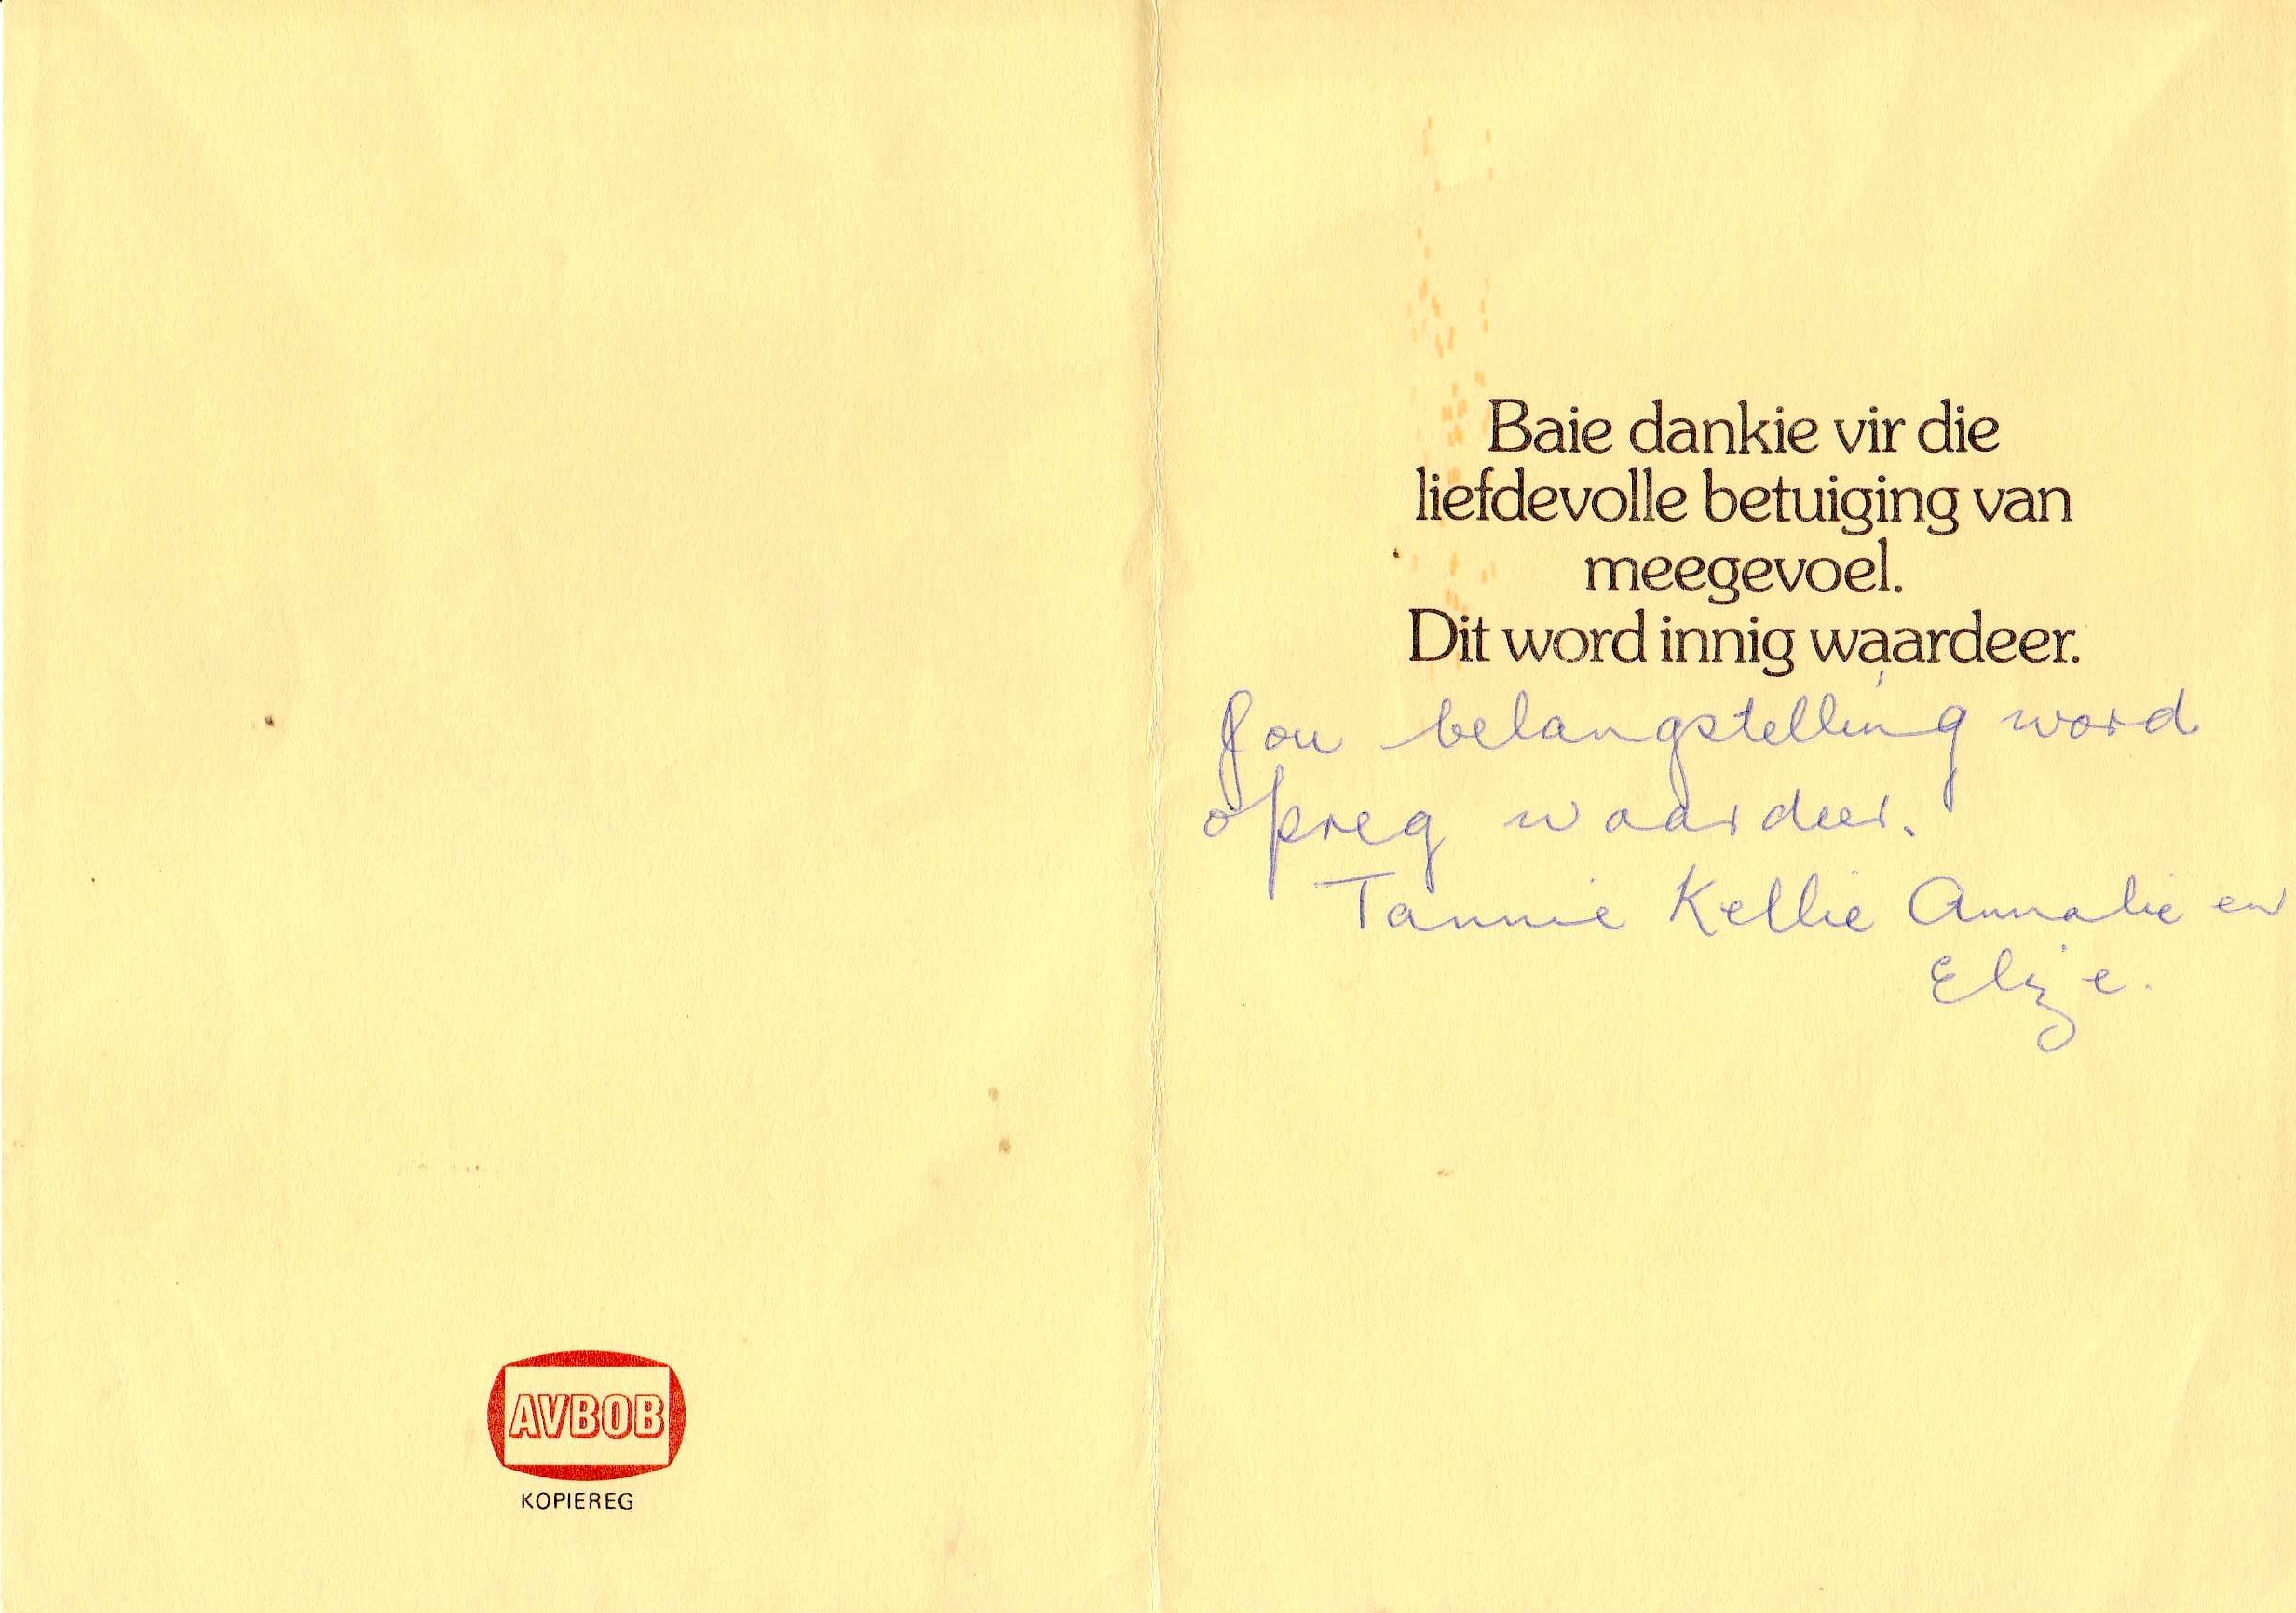 AVBOB
KOPIEREG
Baie dankie vir die
liefdevolle betuiging van
meegevoel.
Dit word innig waardeer.
Jou belangstelling word
opreg waardeer.
Tannie Kellie Annalie en
Elzje.